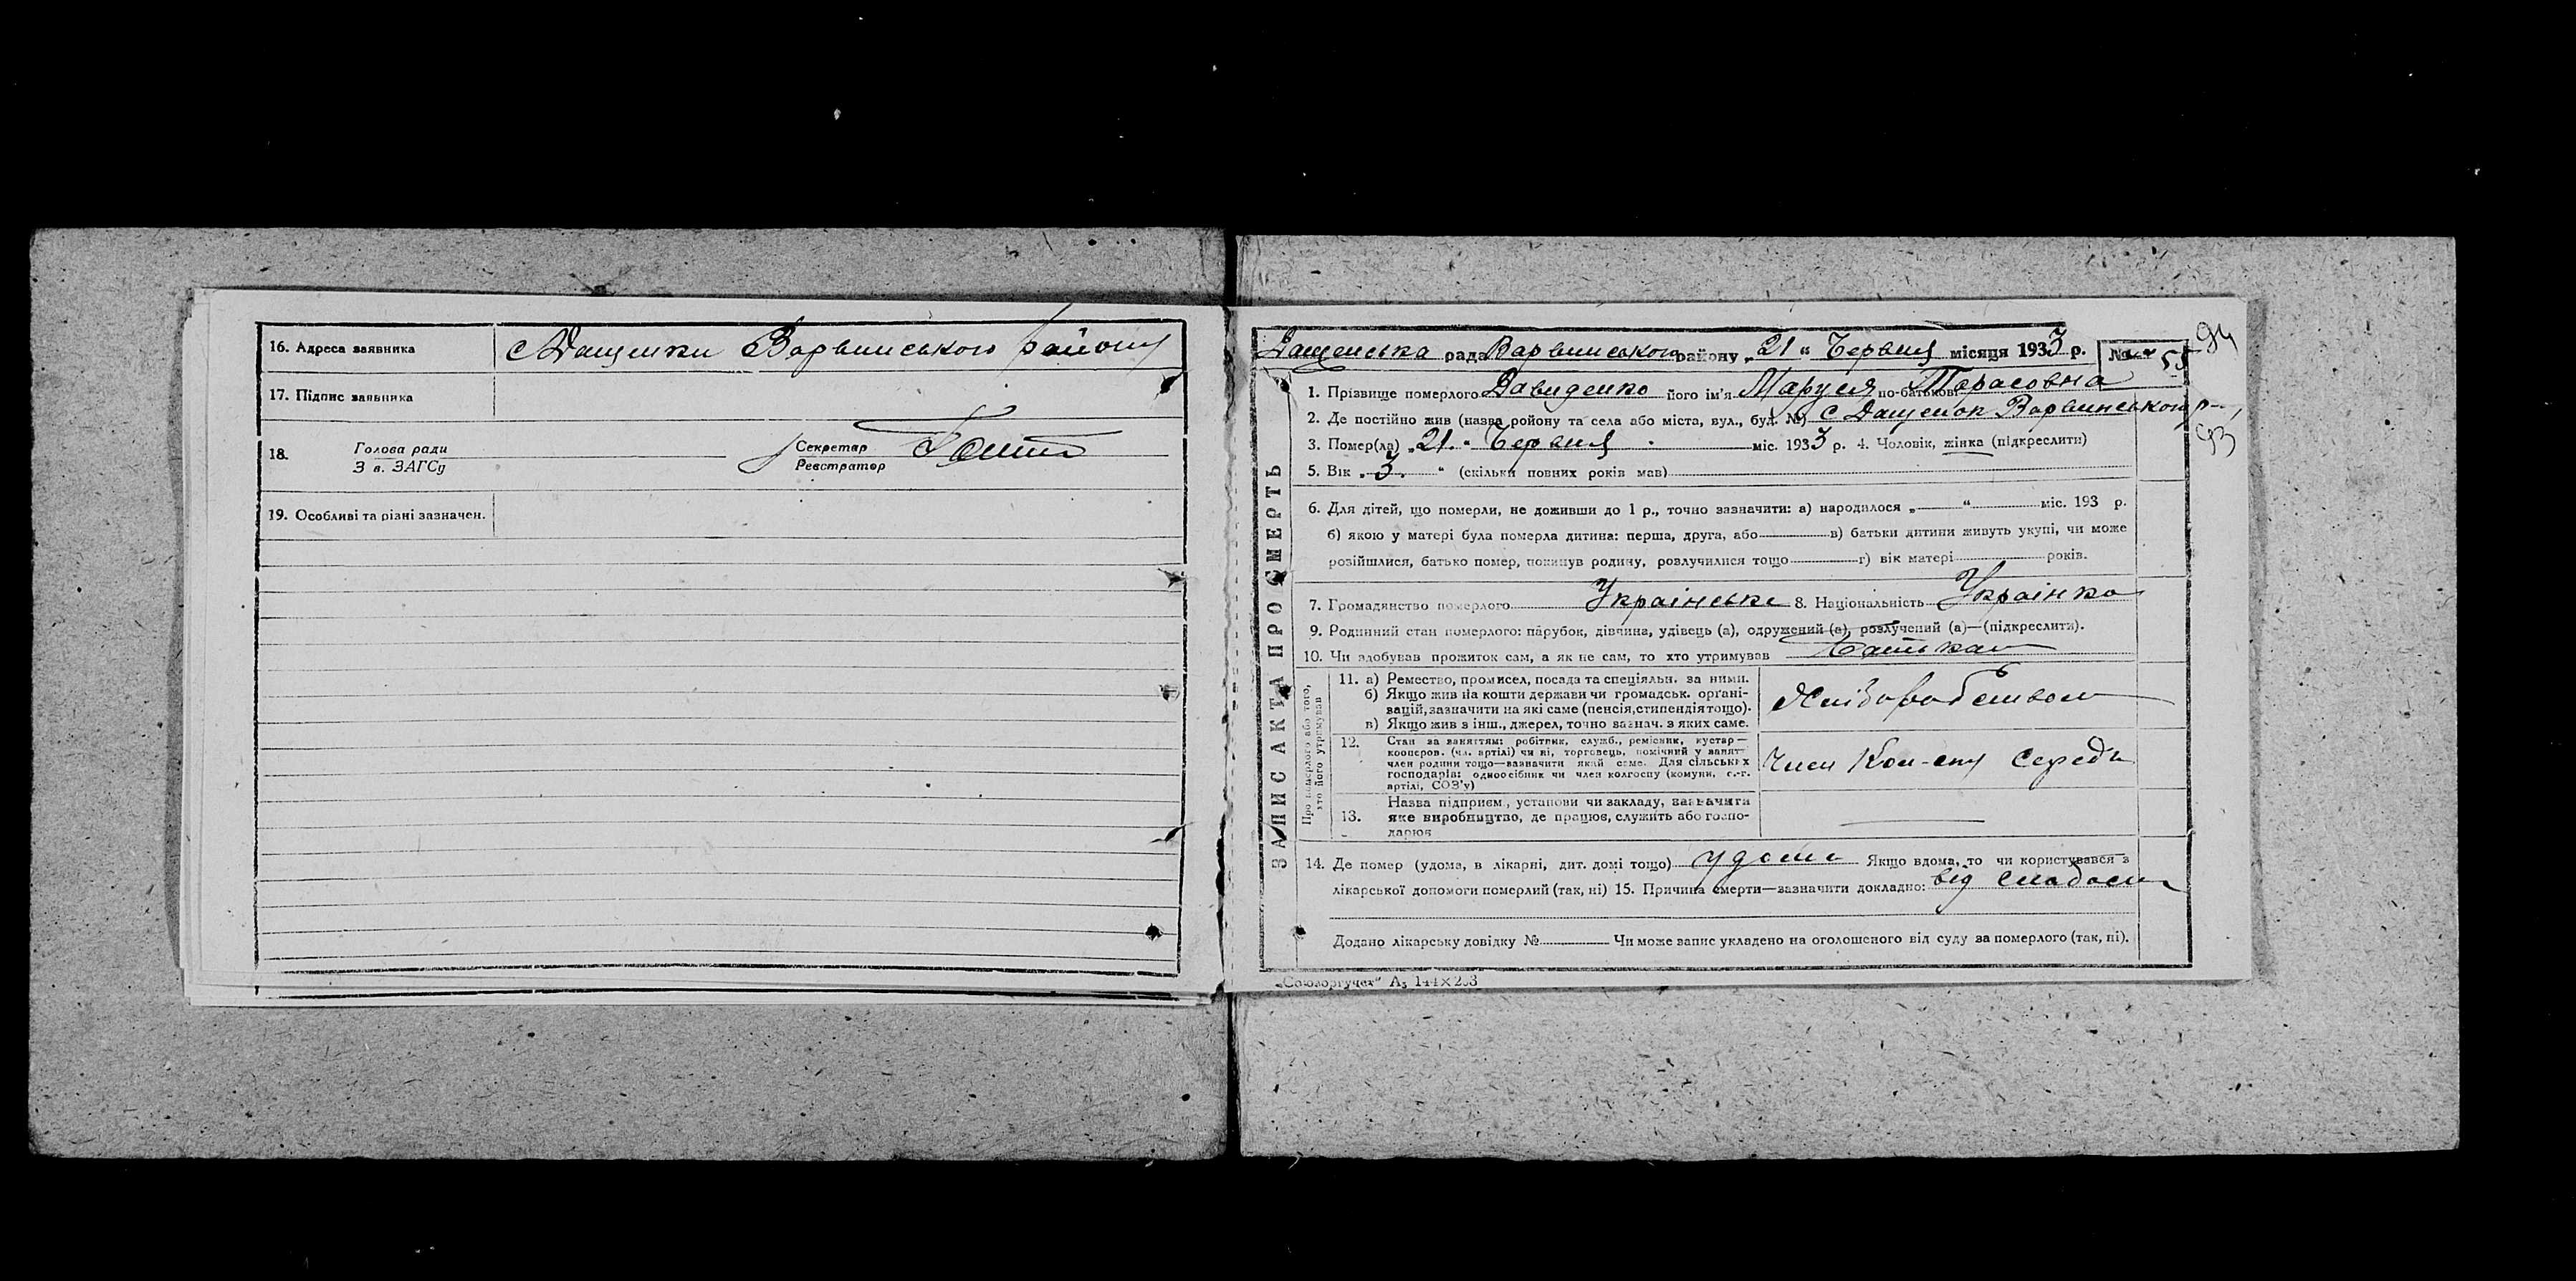 16. Адреса заявника с Дащенки Варвинського району
17. Підпис заявника
18. Голова ради Секретар
З в. ЗАГСу Реєстратор
19. Особливі та різні зазначен.
94
Дащенська рада Варвинського району „21“ Червня місяця 1933 р. № 55
ЗАПИС АКТА ПРО СМЕРТЬ
1. Прізвище померлого Давиденко його ім'я Маруся по-батькові Тарасовна
2. Де постійно жив (назва району та села або міста, вул., буд. №) с Дащенок Варвинського р-
93
3. Помер(ла) „21“ Червня міс. 1933 р. 4. Чоловік, жінка (підкреслити)
5. Вік „3“ (скільки повних років мав)
6. Для дітей, що померли, не доживши до 1 р., точно зазначити: а) народилося „ “ міс. 193 р.
б) якою у матері була померла дитина: перша, друга, або в) батьки дитини живуть укупі, чи може
розійшлися, батько помер, покинув родину, розлучилися тощо г) вік матері років.
7. Громадянство померлого Українське 8. Національність Українка
9. Родинний стан померлого: парубок, дівчина, удівець (а), одружений (а), розлучений (а)—(підкреслити).
10. Чи здобував прожиток сам, а як не сам, то хто утримував Батько
Про померлого або того,
хто його утримував
11. а) Ремество, промисел, посада та спеціяльн. за ними.
б) Якщо жив на кошти держави чи громадськ. органі-
зацій, зазначити на які саме (пенсія, стипендія тощо).
в) Якщо жив з інш., джерел, точно зазнач. з яких саме.
Хліборобством
12. Стан за заняттям: робітник, служб., ремісник, кустар—
коопєров. (чл. артілі) чи ні, торговець, помічний у занят
член родини тощо—зазначити який саме. Для сільських
господарів: одноосібник чи член колгоспу (комуни, с.-г.
артілі, СОЗ'у)
Член Кол-спу Середн
13. Назва підприєм., установи чи закладу, зазначити
яке виробництво, де працює, служить або госпо-
дарює
14. Де помер (удома, в лікарні, дит. домі тощо) удома Якщо вдома, то чи користувався з
лікарської допомоги померлий (так, ні) 15. Причина смерти—зазначити докладно: від слабости
Додано лікарську довідку № Чи може запис укладено на оголошеного від суду за померлого (так, ні).
„Союзоргучет“ А₅ 144×203